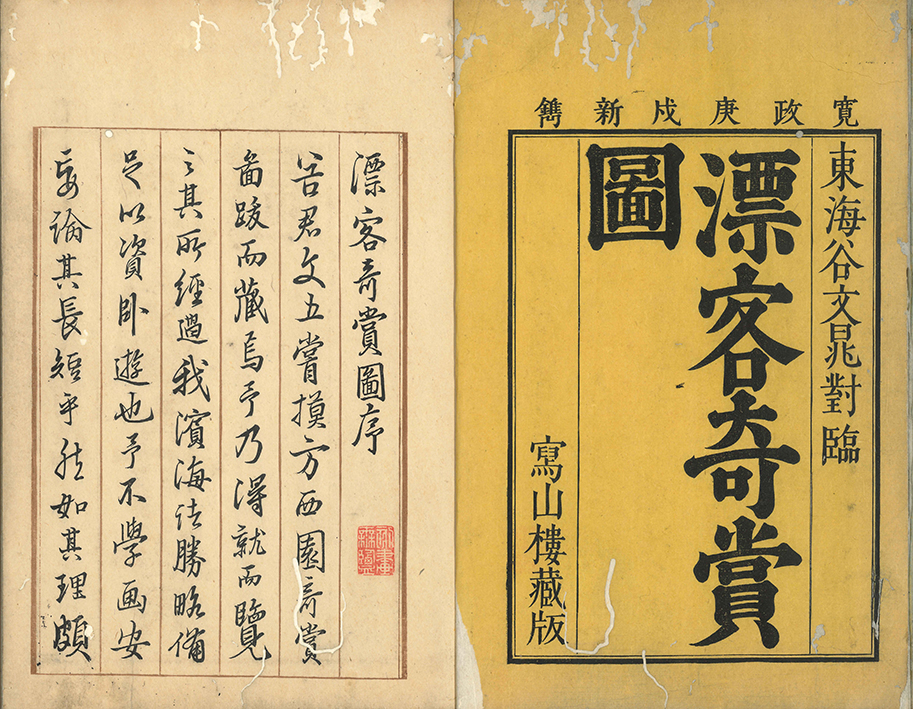 寛政庚戌新鐫
東海谷文晁對臨
漂客奇賞
圖
寫山樓藏版
漂客奇賞圖序
谷君文五嘗摸方西園奇賞
啚跋而藏焉予乃得就而覽
之其所經過我濱海諸勝略備
足以資卧遊也予不學画安
妄論其長短乎然如其理頗